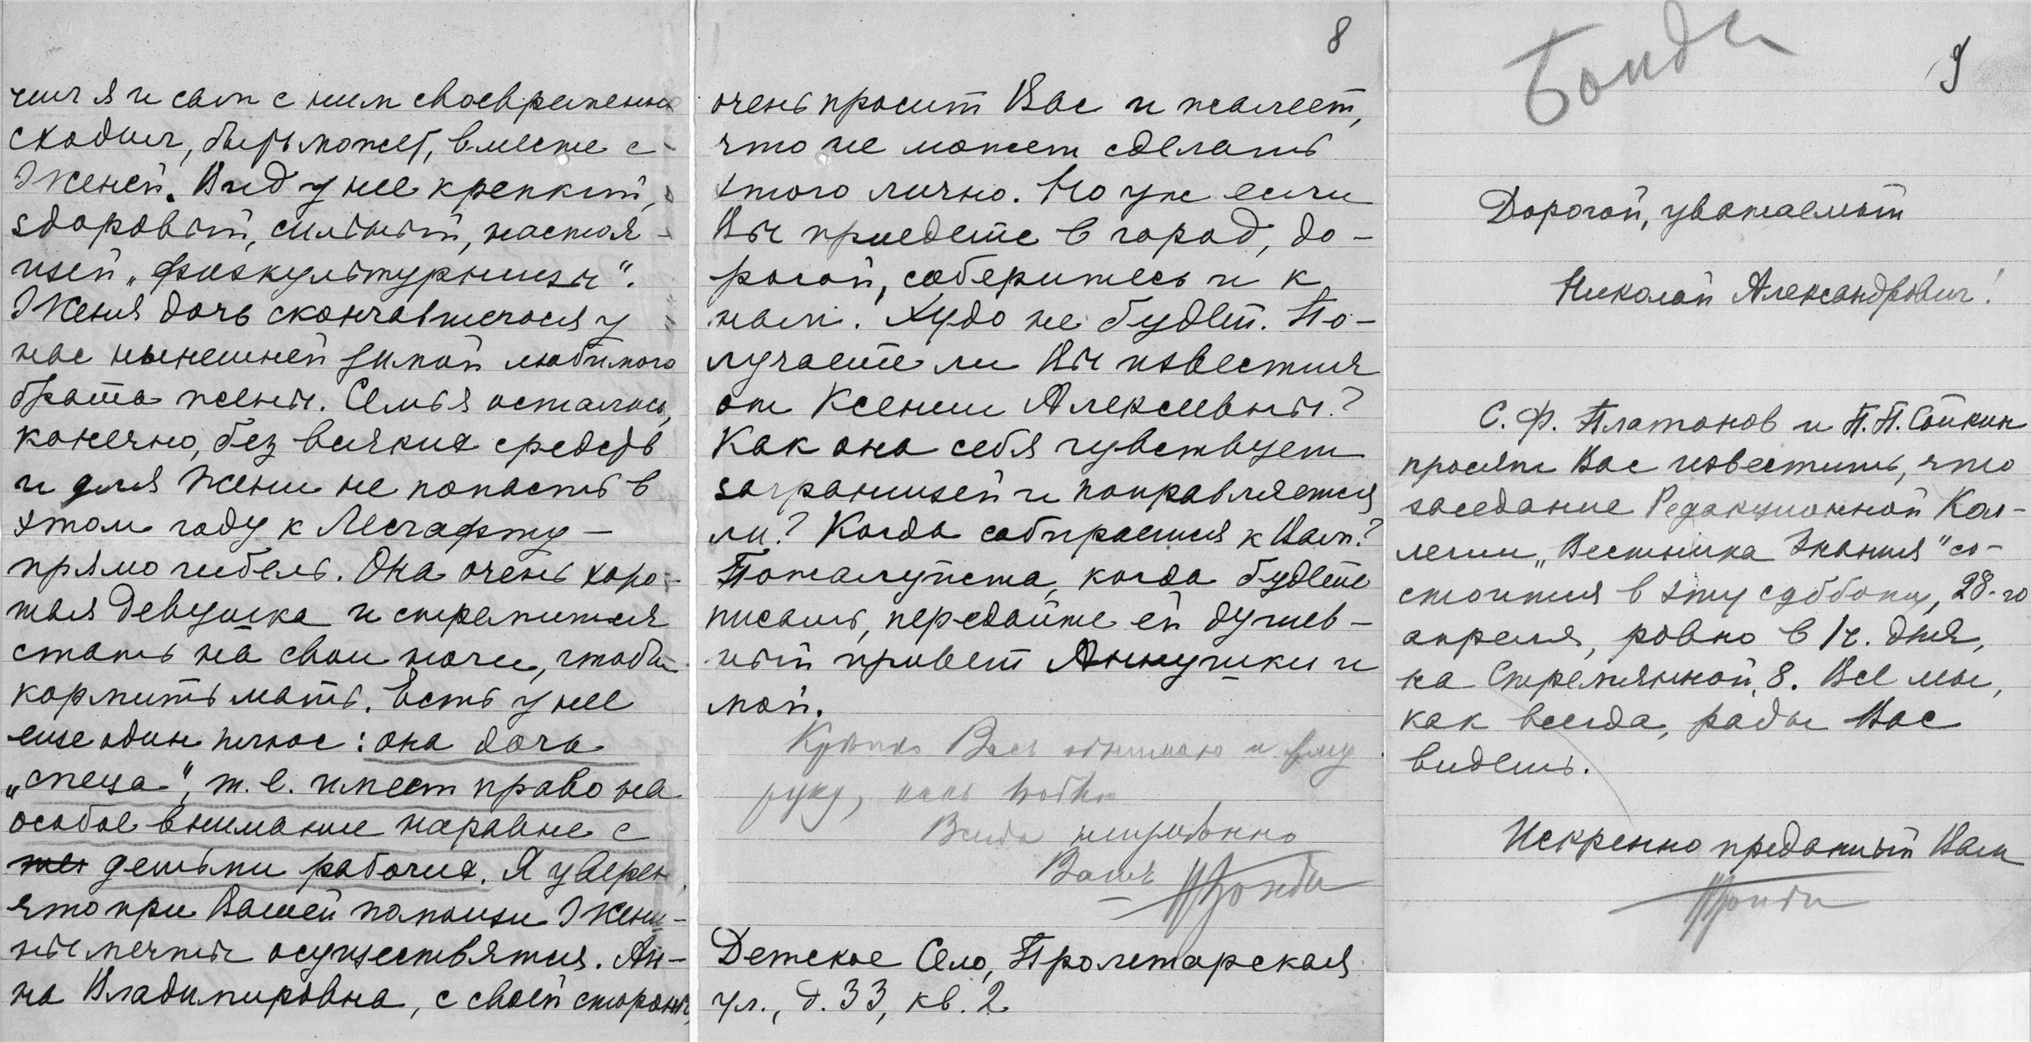 чил я и сам с ним своевременно
сходил, быть может, вместе с
Женей. Вид у нее крепкий,
здоровый, сильный, настоя-
щей „физкультурницы“.
Женя дочь скончавшегося у
нас нынешней зимой любимого
брата жены. Семья осталась,
конечно, без всяких средств
и для Жени не попасть в
этом году к Лесгафту —
прямо гибель. Она очень хоро-
шая девушка и стремится
стать на свои ноги, чтобы
кормить мать. Есть у нее
еще один плюс: она дочь
„спеца“, т.е. имеет право на
особое внимание наравне с
детьми рабочих. Я уверен,
что при Вашей помощи Жени-
ны мечты осуществятся. Ан-
на Владимировна, с своей стороны,
8
очень просит Вас и жалеет,
что не может сделать
этого лично. Но уж если
Вы приедете в город, до-
рогой, соберитесь и к
нам. Худо не будет. По-
лучаете ли Вы известия
от Ксении Алексеевны?
Как она себя чувствует
заграницей и поправляется
ли? Когда собирается к Вам?
Пожалуйста, когда будете
писать, передайте ей душев-
ный привет Аннушки и
мой.
Крепко Вас обнимаю и жму
руку, как люблю
Всегда неизменно
Ваш ВБонди
Детское Село, Пролетарская
ул., д. 33, кв. 2
Бонди
9
Дорогой, уважаемый
Николай Александрович!
С. Ф. Платонов и П. П. Сойкин
просят Вас известить, что
заседание Редакционной Кол-
легии „Вестника Знания“ со-
стоится в эту субботу, 28-го
апреля, ровно в 1 ч. дня,
на Стремянной, 8. Все мы,
как всегда, рады Вас
видеть.
Искренно преданный Вам
ВБонди